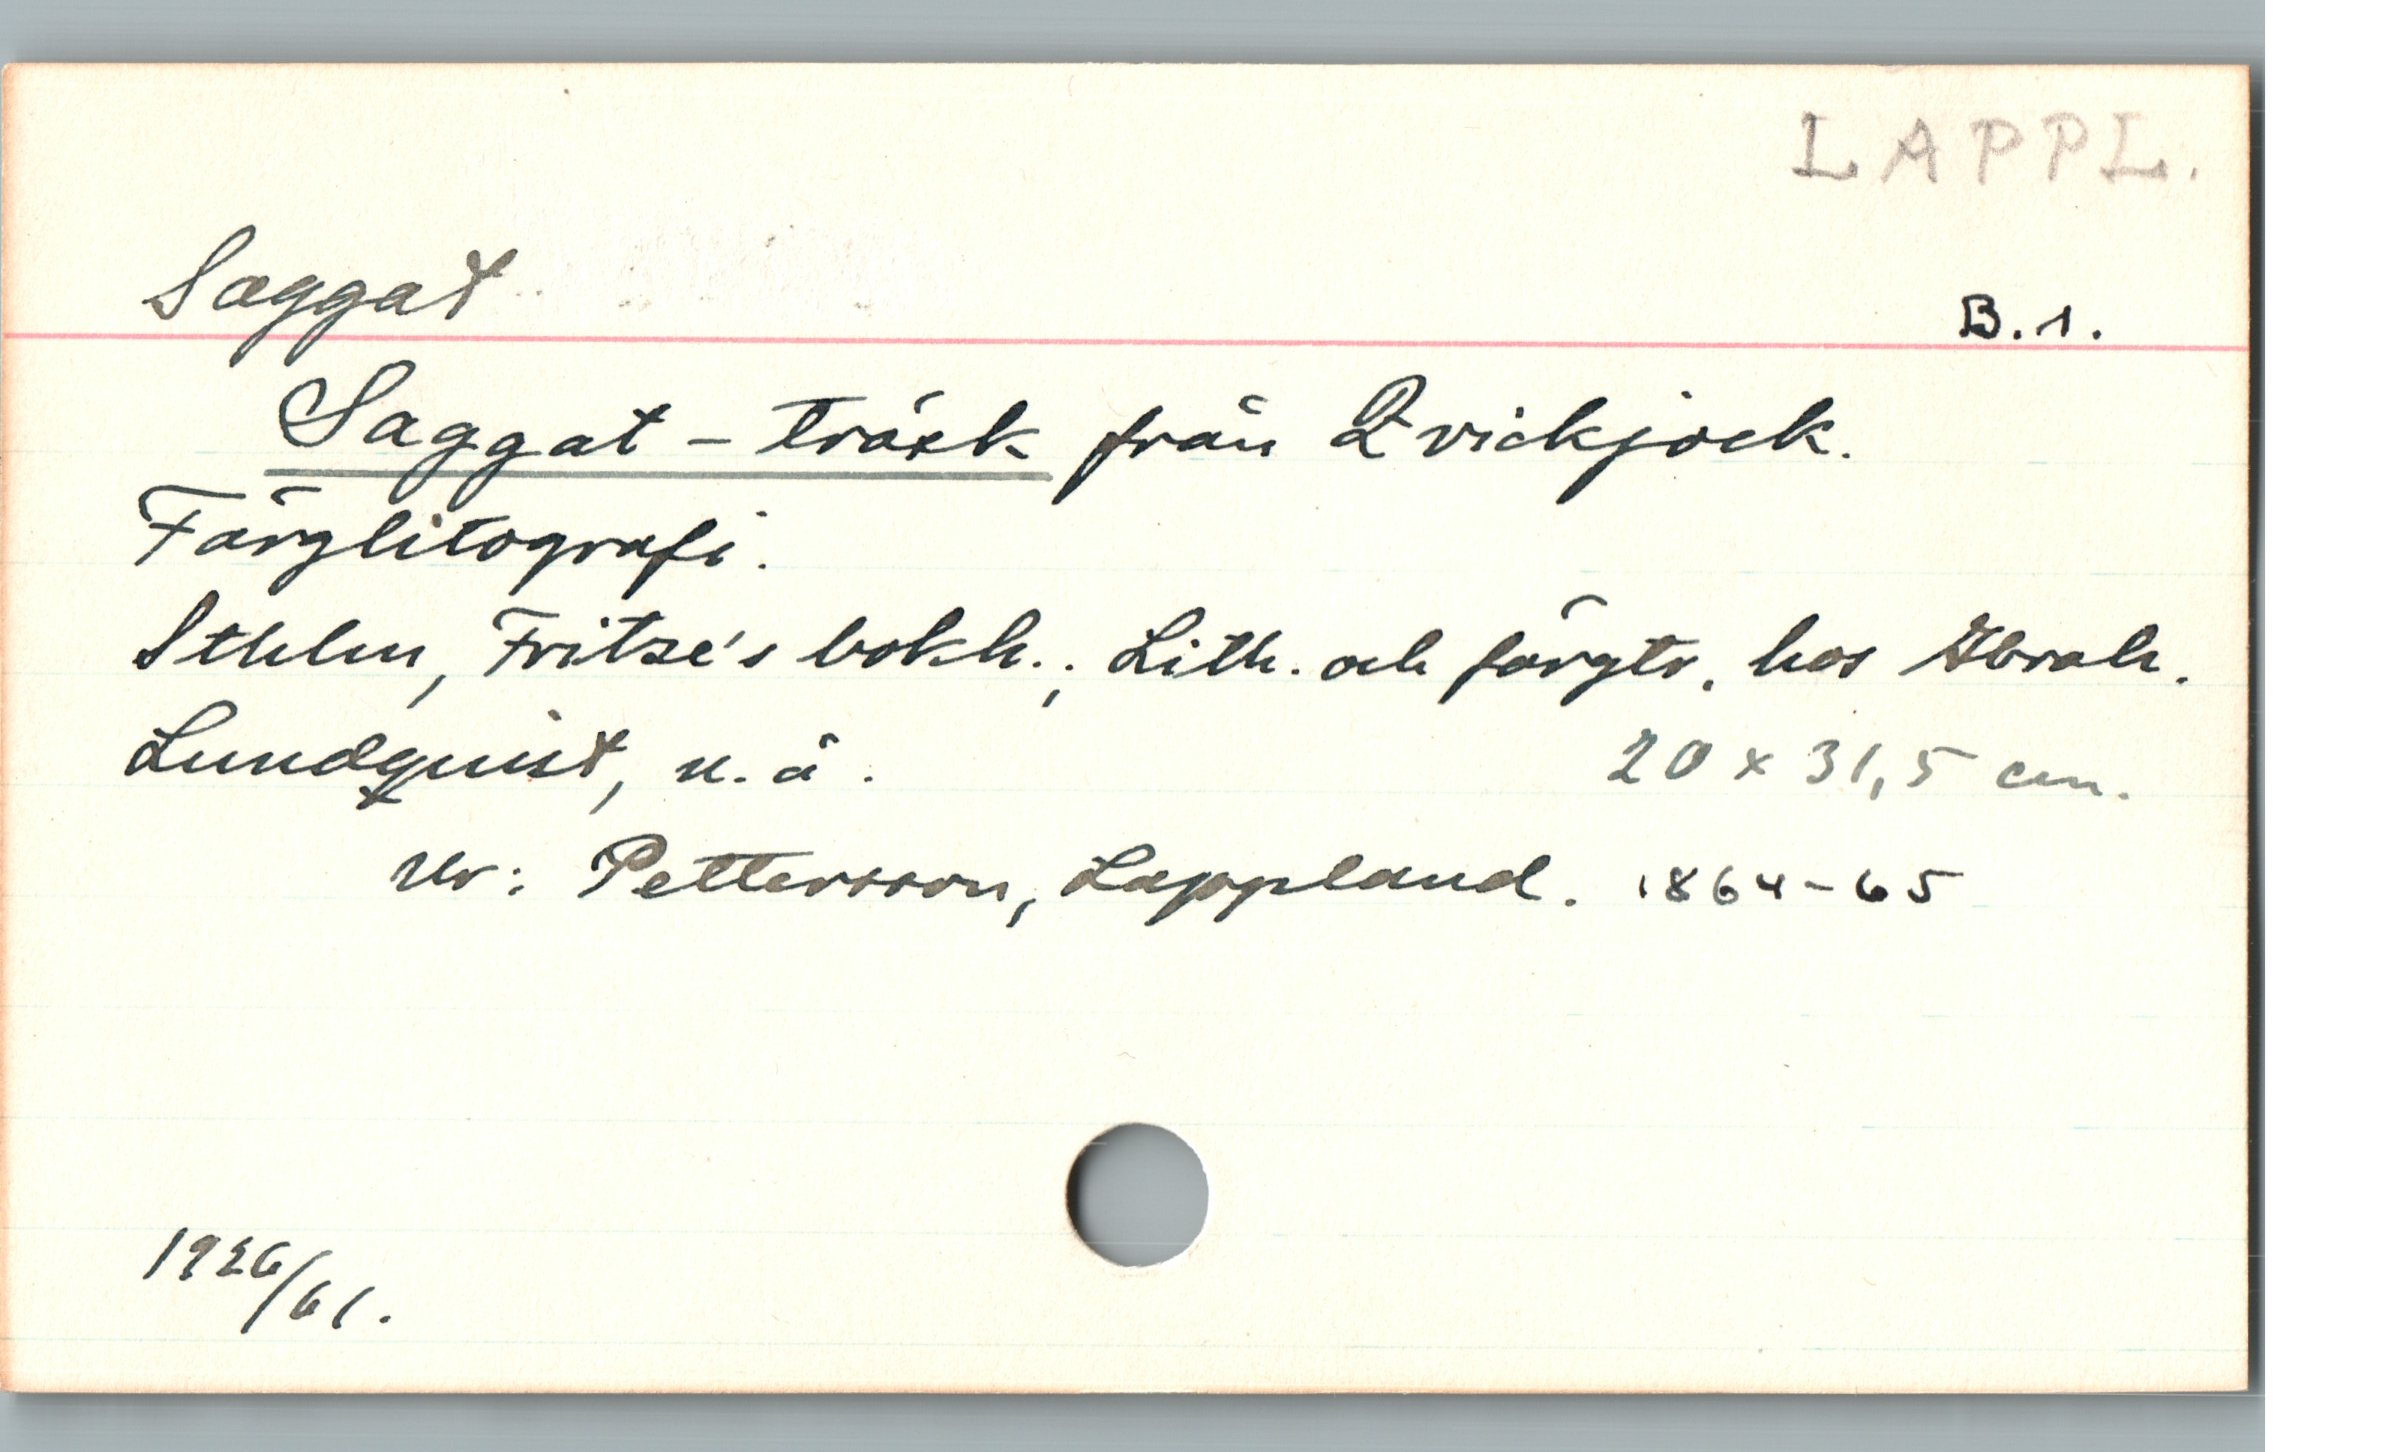 LAPPL.
Saggat
B.1.
Saggat-träsk från Qvickjock.
Färglitografi.
Sthlm, Fritze's bokh.; Lith. och färgtr. hos Abrah.
Lundquist, u.å.
20 x 31,5 cm.
Ur: Pettersson, Lappland. 1864-65
1926/61.